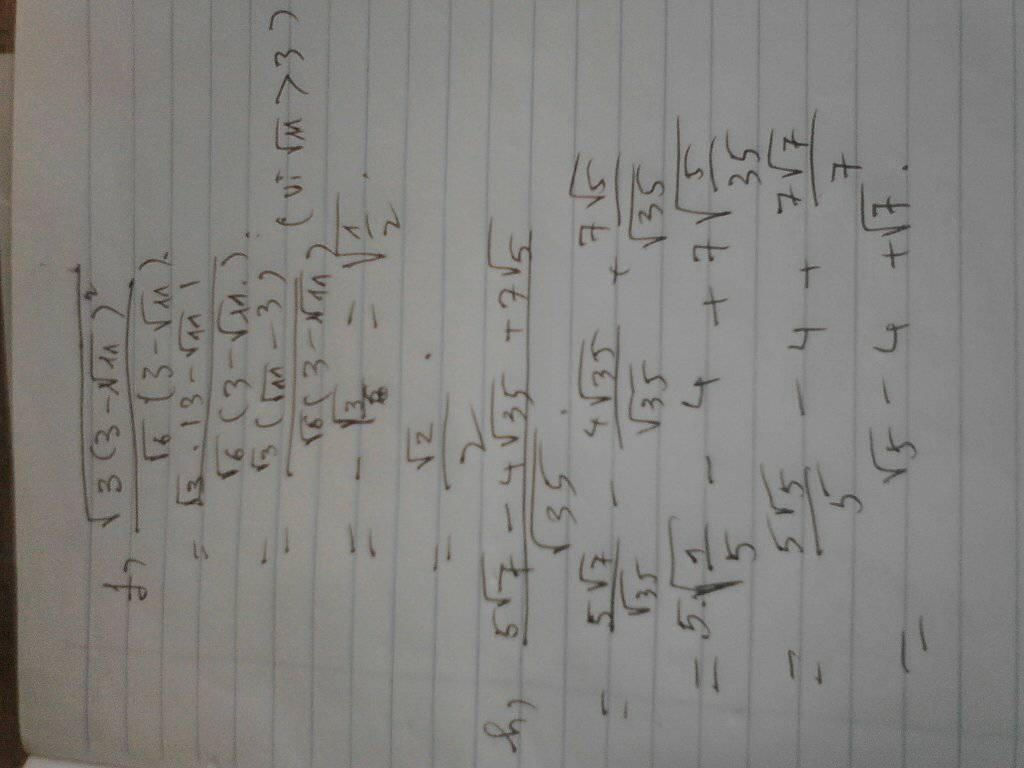 f, √3(3-√11)² / √6(3-√11).
= √3.|3-√11| / √6(3-√11).
= √3(√11-3) / √6(3-√11) (vì √11 > 3)
= -√3/6 = -√1/2.
= √2 / 2.
h, 5√7 - 4√35 + 7√5 / √35.
= 5√7/√35 - 4√35/√35 + 7√5/√35
= 5.√1/5 - 4 + 7√5/35
= 5√5/5 - 4 + 7√7/7
= √5 - 4 + √7.